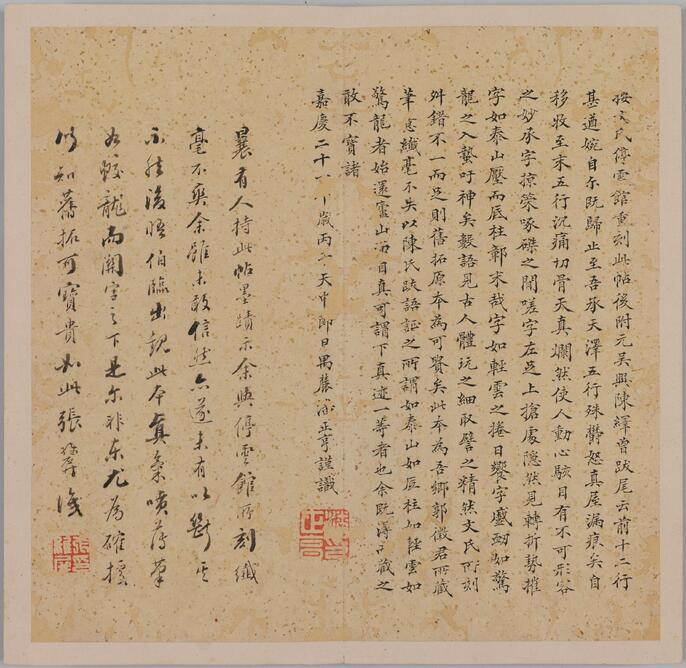 按文氏停雲館重刻此帖後附元吳興陳繹曾跋尾云前十二行
甚遒婉自尔既歸止至吾承天澤五行殊鬱怒真屋漏痕矣自
移牧至末五行沉痛切骨天真爛然使人動心駭目有不可形容
之妙承字掠策啄磔之間嗟字左足上搶處隱然見轉折勢摧
字如泰山壓而底柱鄣末哉字如輕雲之捲日饗字盛動如驚
龍之入蟄吁神矣數語見古人體玩之細取譬之精然文氏所刻
舛錯不一而足則舊拓原本為可貴矣此本為吾鄉郭徵君所藏
筆意纖毫不失以陳氏跋語証之所謂如泰山如底柱如輕雲如
驚龍者始還舊山面目真可謂下真迹一等者也余既得而藏之
敢不寶諸
嘉慶二十一年歲丙子天中節日禺麓 正亨謹識
曩有人持此帖墨蹟示余與停雲館所刻纖
毫不爽余雖未敢信然亦遂未有以斷其
不然後晤伯臨出觀此本真氣噴薄筆
如蛟龍而關字之下是尔非东尤為確據
乃知舊拓可寶貴如此張 識